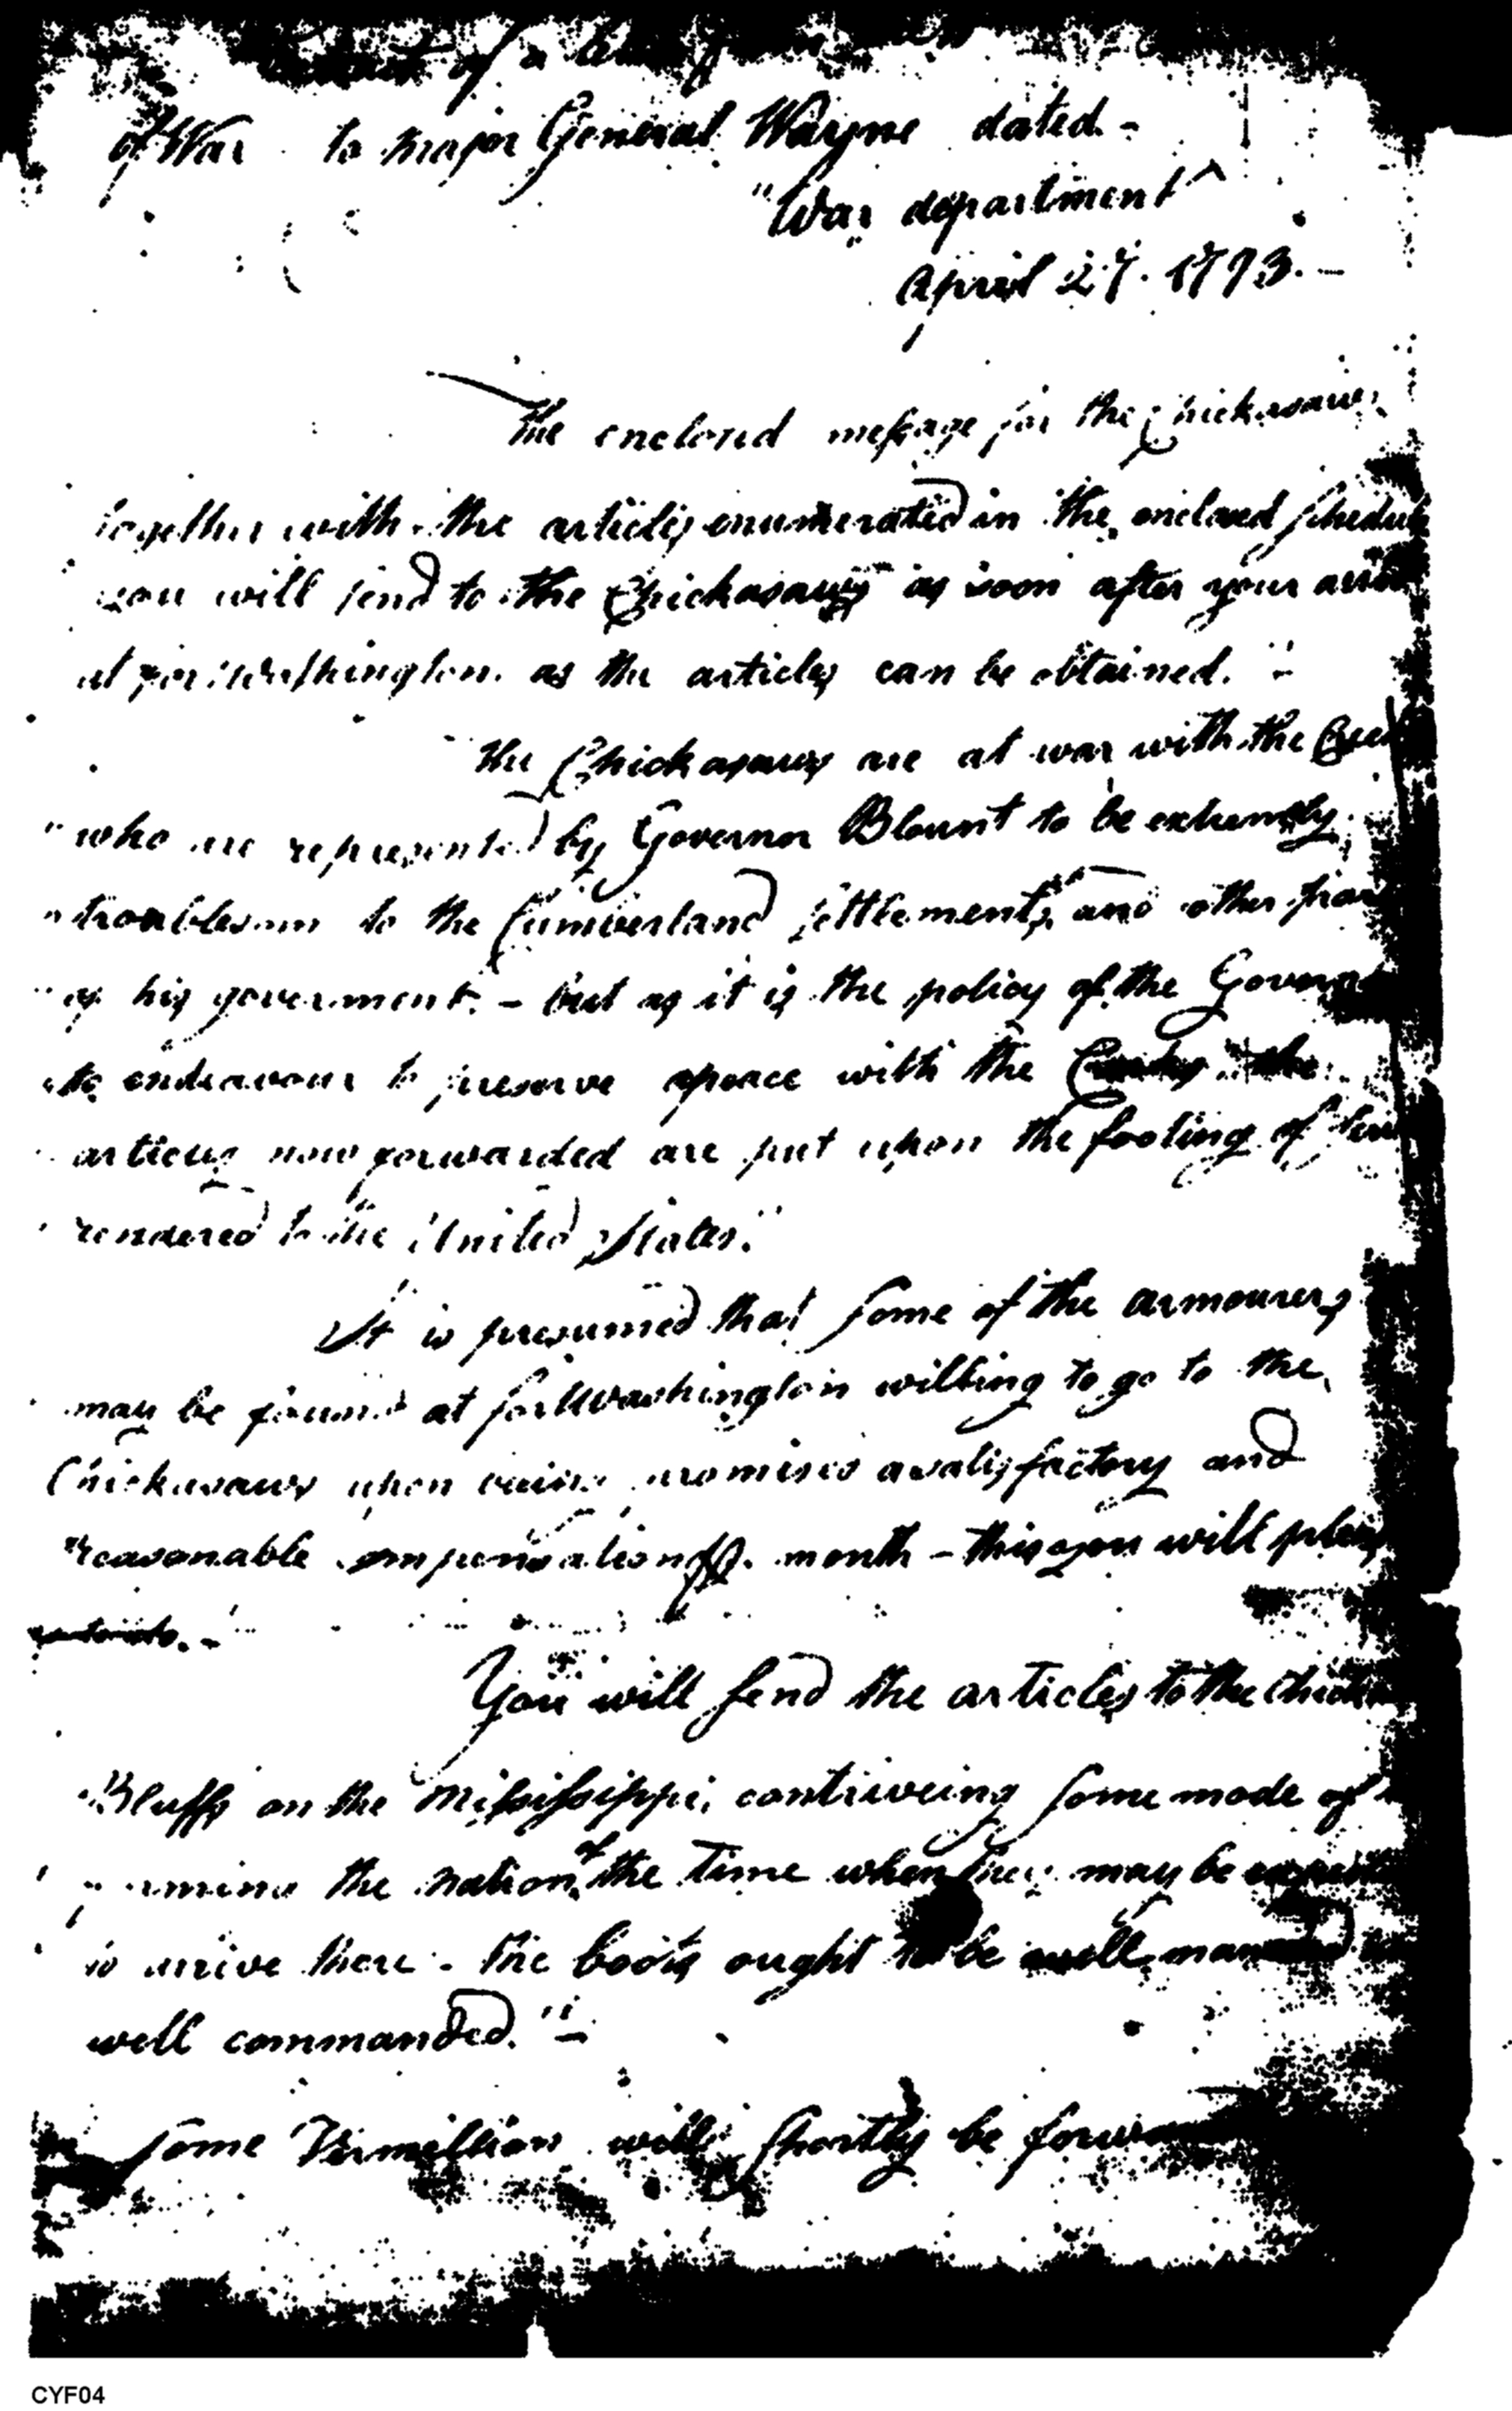 of a
of War to major General Wayne dated -
"War department
April 27. 1793. -
The enclosed message for the Chickasaws
together with the articles enumerated in the enclosed schedule
you will send to the Chickasaws as soon after your
at fort Washington as the articles can be obtained. "-
The Chickasaws are at war with the
" who are represented by Governor Blount to be extremely
" troublesom to the Cumberland settlements, and other
" of his government. - but as it is the policy of the
to endeavour to preserve apeace with the Creeks the
articles now forwarded are put upon the footing of
rendered to the United States."
It is presumed that some of the armourers
may be found at fort Washington willing to go to the
Chickasaws upon being promised a satisfactory and
reasonable compensation p. month - this you will
You will send the articles to the
Bluffs on the Missisippi, contriveing some mode of
the nation of the time when they may be
to arrive there - the boats ought to be well manned
well commanded. "-
some Vermillion will shortly be
CYF04